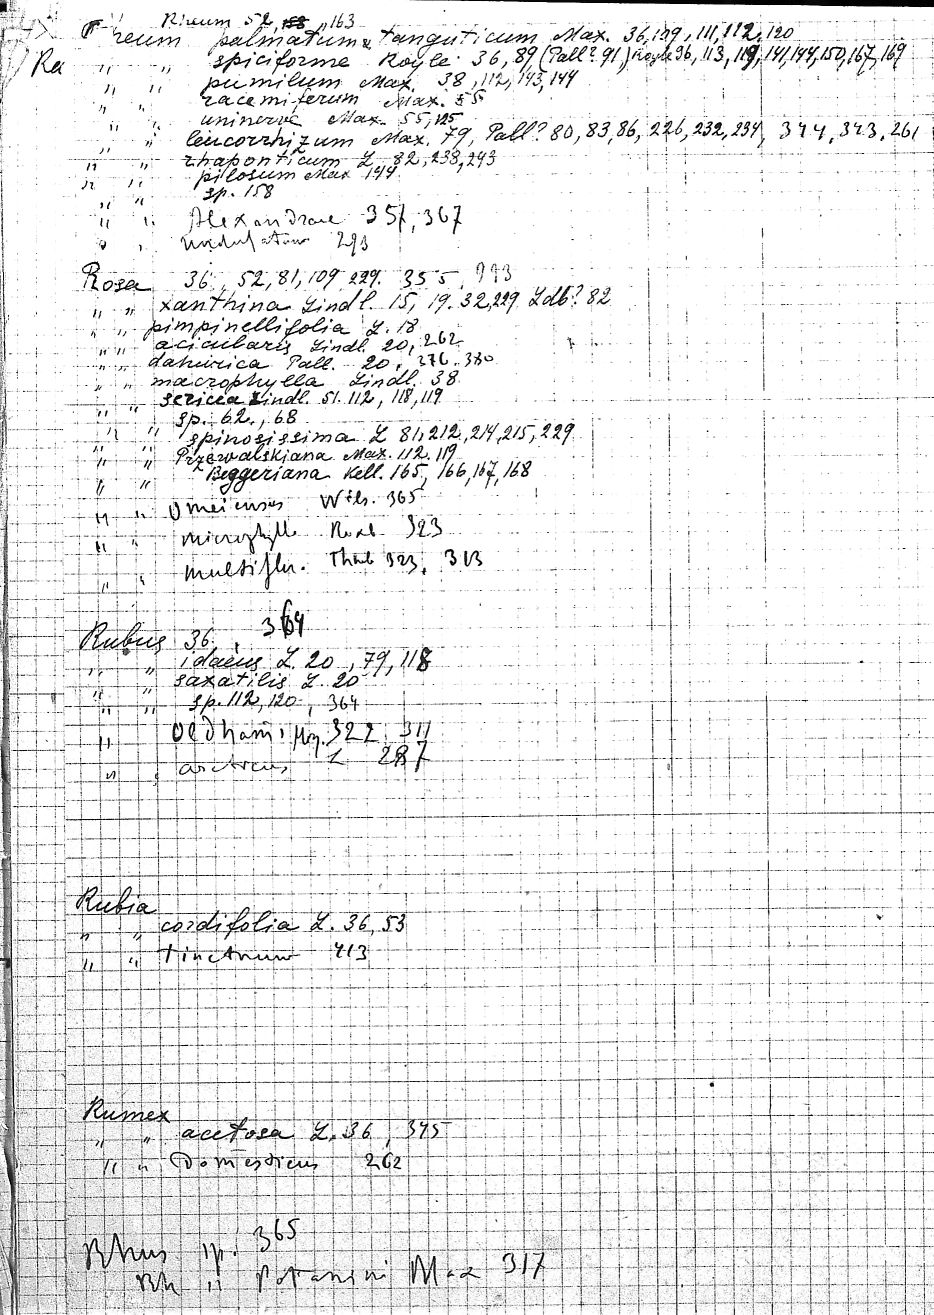 Rheum 52, 163
Rheum palmatum v. tanguticum Max. 36, 109, 111, 112, 120
Ra " " spiciforme Royle 36, 89 (Pall? 91) Royle 96, 113, 119, 141, 144, 150, 167, 169
" " pumilum Max. 38, 112, 143, 144
" " racemiferum Max. 55
" " uninerve Max. 55, 125
" " leucorrhizum Max. 79, Pall? 80, 83, 86, 226, 232, 234, 344, 343, 261
" " rhaponticum L. 82, 238, 243
" " pilosum Max 144
" " sp. 158
" " Alexandrae 357, 367
" " undulatum 293
Rosa 36, 52, 81, 109 229. 355,
" " xanthina Lindl. 15, 19. 32, 229 Ldb? 82
" " pimpinellifolia L. 18
" " acicularis Lindl. 20, 262
" " dahurica Pall. 20, 376. 380
" " macrophylla Lindl. 38
" " sericea Lindl. 51. 112, 118, 119
" " sp. 62., 68
" " spinosissima L 81, 212, 214, 215, 229
" " Przewalskiana Max. 112. 119
" " Beggeriana Kell. 165, 166, 167, 168
" " Omeiensis Wils. 365
" " microphylla Roxb. 323
" " multiflor. Thunb 323, 313
Rubus 36, 364
" " idaeus L. 20, 79, 118
" " saxatilis L. 20
" " sp. 112, 120, 364
" Oldhami Miq. 322. 311
" " arcticus L 287
Rubia
" " cordifolia L. 36, 53
" " tinctorum 413
Rumex
" " acetosa L. 36, 345
" " Domesticus 262
Rhus sp. 365
Rh " Potanini Max 317